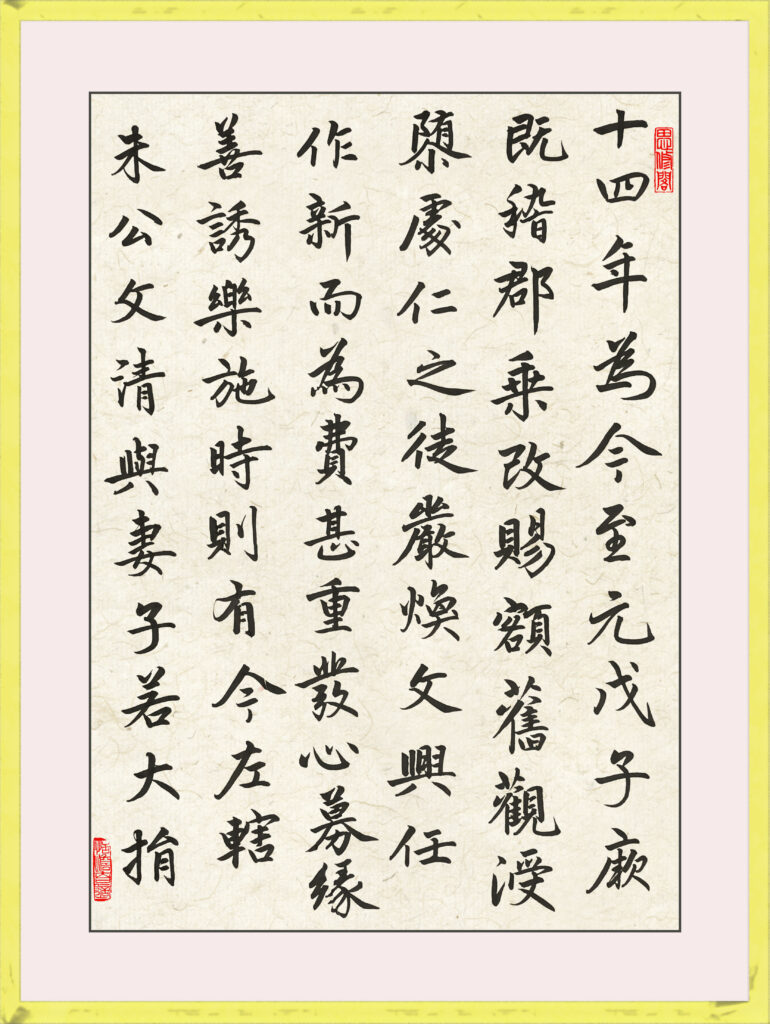 思修閣
十四年為今至元戊子厥
既稽郡乘改賜額舊觀浸
隳處仁之徒嚴煥文興任
作新而為費甚重發心募緣
善誘樂施時則有今左轄
朱公文清與妻子若大捐